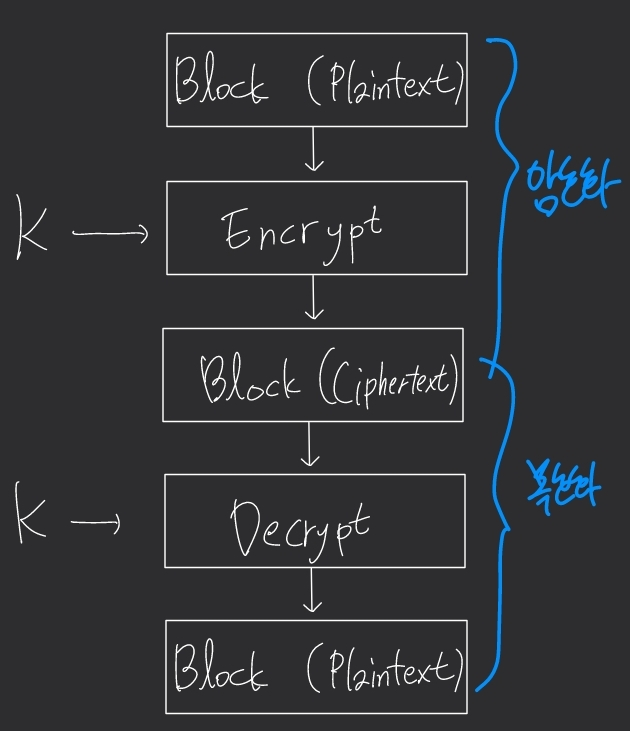 Block (Plaintext)
암호화
K
Encrypt
Block (Ciphertext)
복호화
K
Decrypt
Block (Plaintext)